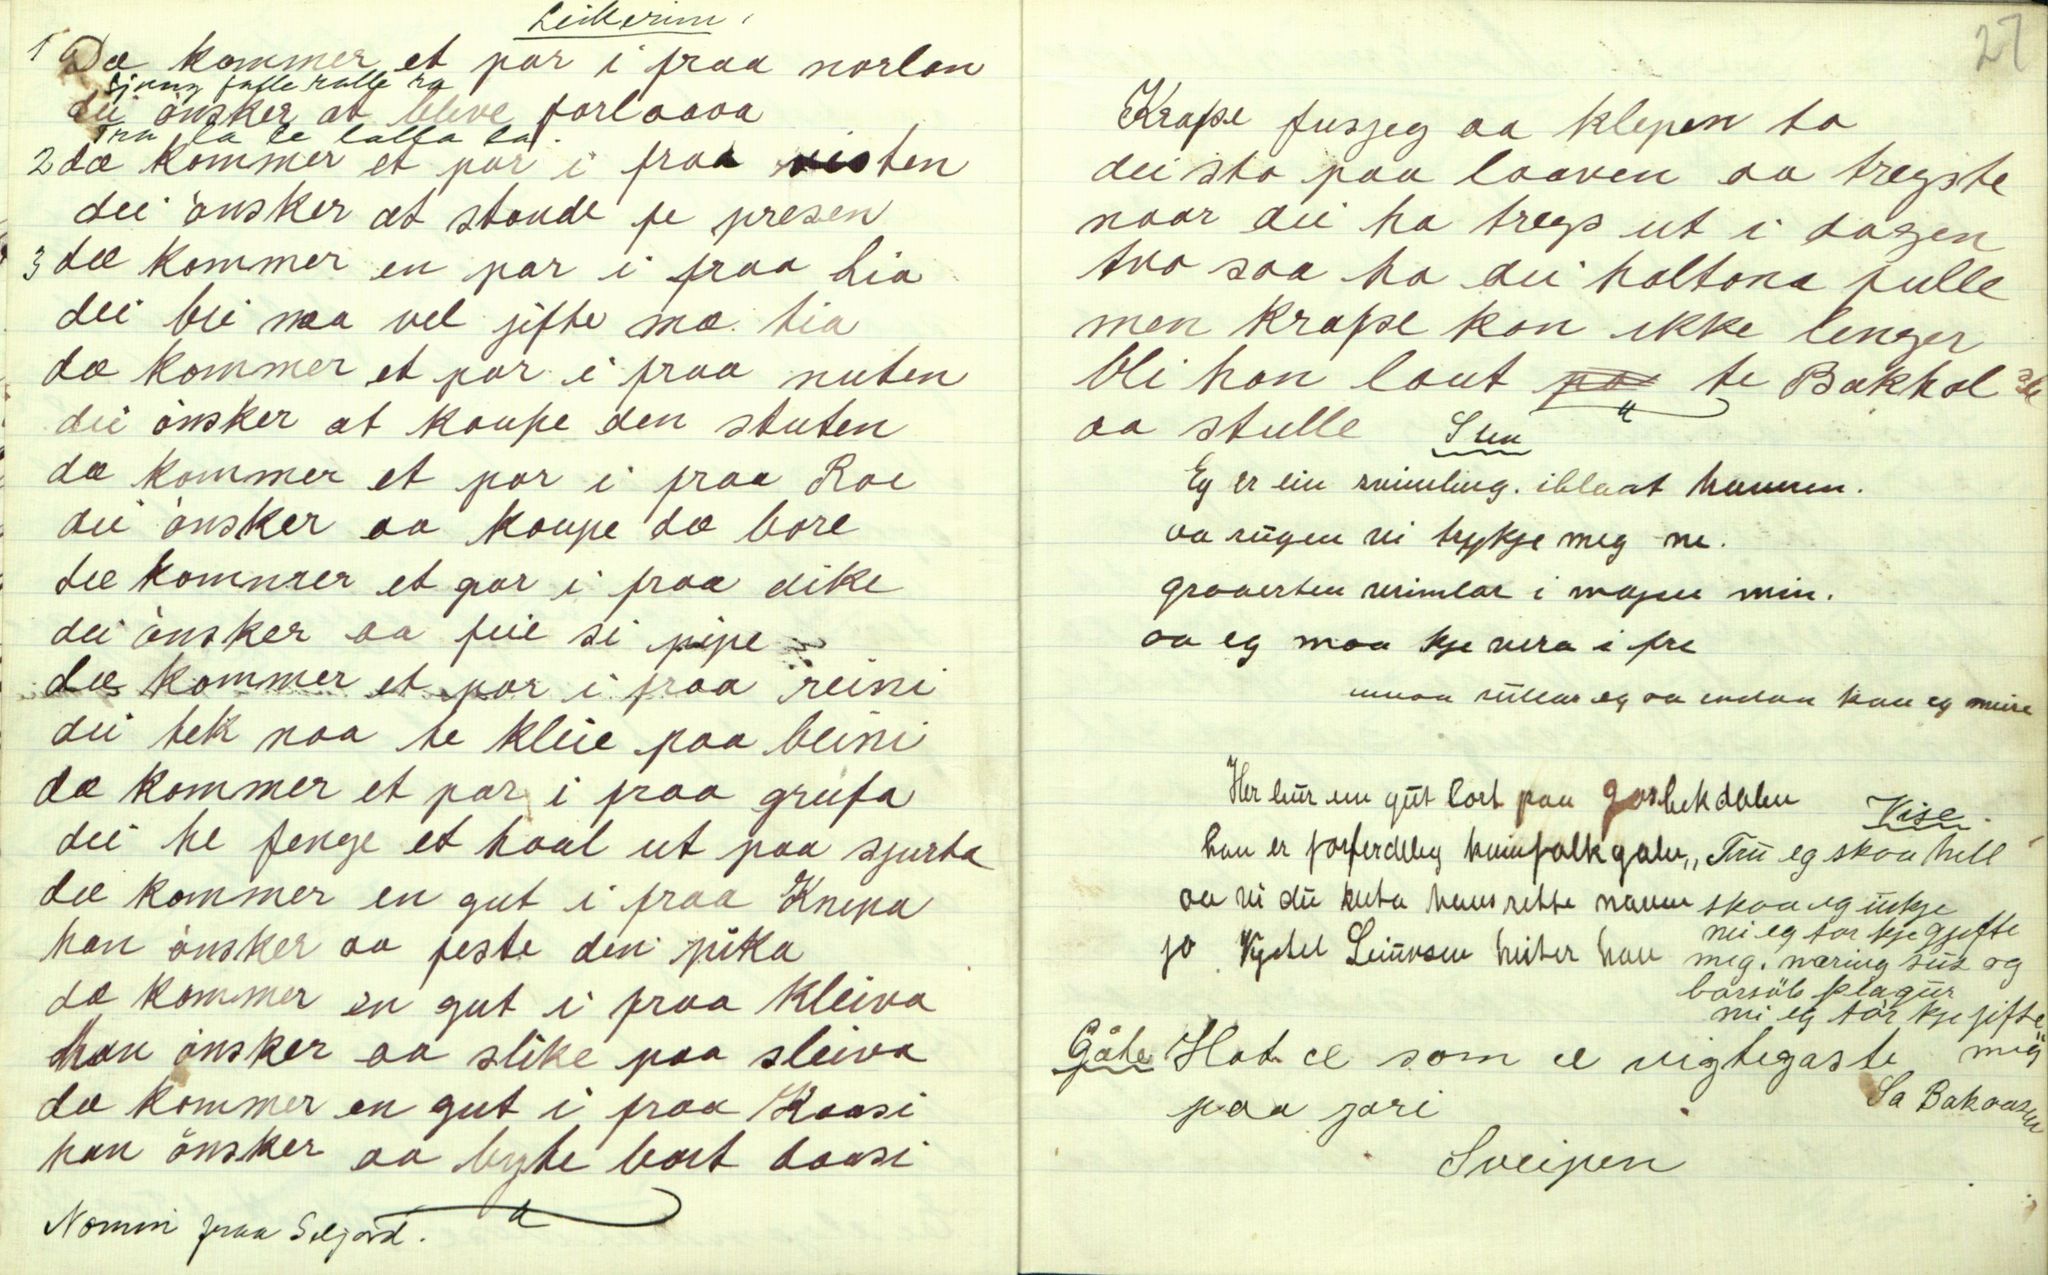 Leikerim.
1 Dæ kommer et par i fraa norlan
Sjung falle ralle ra
dei ønsker at bleve forlaava
Tra la le lalla la.
2 dæ kommer et par i fraa visten
dei ønsker at stande fe presen
3 dæ kommer en par i fraa Lia
dei bie naa vel jifte mæ. tia
dæ kommer et par i fraa nuten
dei ønsker at kaupe den stuten
dæ kommer et par i fraa Roe
dei ønsker aa kaupe dæ bore
dæ kommer et par i fraa dike
dei ønsker aa feie si pipe
dæ kommer et par i fraa reini
dei tek naa te kleie paa beini
dæ kommer et par i fraa grufa
dei he fenge et haal ut paa sjurta
dæ kommer en gut i fraa Knepa
han ønsker aa feste den pika
dæ kommer en gut i fraa Kleiva
han ønsker aa slike paa sleiva
dæ kommer en gut i fraa Kaasi
han ønsker aa byte bort baasi
Nommi fraa Seljord.
27
Krafse fusjeg aa klepen ta
dei sto paa laaven aa tregste
naar dei ha tregs ut i dagen
tvo saa ha dei haltona fulle
men krafse kan ikke lenger
bli han laut te Bakhol
aa stulle
Stev
Eg er ein svimling. i blaat
aa rugen vi trykje meg ne.
graaerten vrimlar i magen min.
aa eg maa kje vera i fre
rullar eg aa endaa kan eg meire
Her bur en gut bort paa
han er forferdeleg kvinfolkgalen,,
aa vi du veta hans rette navn
jo Kjetel heiter han
Vise.
Tru eg skaa hell
skaa eg inkje
nei eg tor kje gjifte
meg. næring sut og
barsøls plagur
nei eg tør kje jifte
meg
Sa Bakaasen
Gåte Hot æ som æ vigtegaste
paa jori
Sveipen